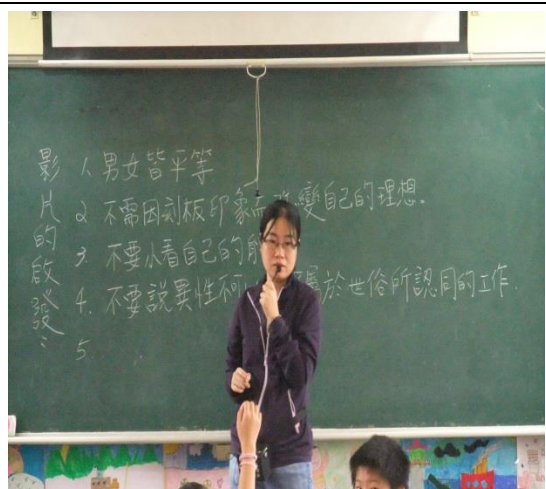 影片的啟發：
1. 男女皆平等
2 不需因刻板印象而改變自己的理想。
3. 不要小看自己的
4. 不要說異性不可 屬於世俗所認同的工作.
5